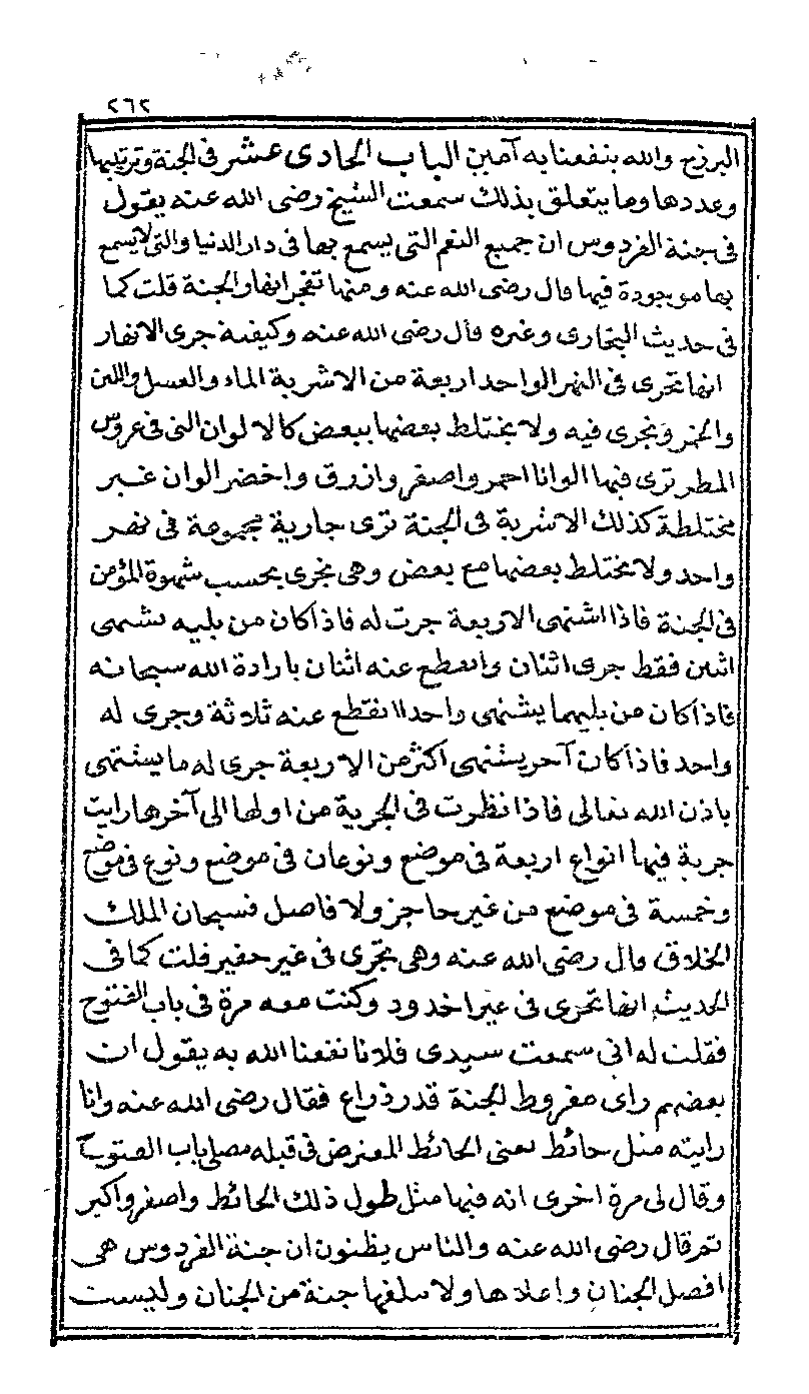 ٢٦٢
البرزخ والله ينفعنا به آمين الباب الحادى عشر فى الجنة وترتيبها
وعددها وما يتعلق بذلك سمعت الشيخ رضى الله عنه يقول
فى جنة الفردوس ان جميع النعم التى يسمع بها فى دار الدنيا والتى لا يسمع
بها موجودة فيها قال رضى الله عنه ومنها تفجر انهار الجنة قلت كما
فى حديث البخارى وغيره قال رضى الله عنه وكيفية جرى الانهار
انها تجرى فى النهر الواحد اربعة من الاشربة الماء والعسل واللبن
والخمر وتجرى فيه ولا يختلط بعضها ببعض كالالوان التى فى عروس
المطر ترى فيها الوانا احمر واصفر وازرق واخضر الوان غير
مختلطة كذلك الاشربة فى الجنة ترى جارية مجموعة فى نهر
واحد ولا يختلط بعضها مع بعض وهى تجرى بحسب شهوة المؤمن
فى الجنة فاذا اشتهى الاربعة جرت له فاذا كان من يليه يشتهى
اثنين فقط جرى اثنان وانقطع عنه اثنان بارادة الله سبحانه
فاذا كان من يليهما يشتهى واحدا انقطع عنه ثلاثة وجرى له
واحد فاذا كان آخر يشتهى اكثر من الاربعة جرى له ما يشتهى
باذن الله تعالى فاذا نظرت فى الجرية من اولها الى آخرها رايت
جرية فيها انواع اربعة فى موضع ونوعان فى موضع ونوع فى موضع
وخمسة فى موضع من غير حاجز ولا فاصل فسبحان الملك
الخلاق قال رضى الله عنه وهى تجرى فى غير حفير قلت كما فى
الحديث انها تجرى فى غير اخدود وكنت معه مرة فى باب الفتوح
فقلت له انى سمعت سيدى فلانا نفعنا الله به يقول ان
بعضهم راى مفروط الجنة قدر ذراع فقال رضى الله عنه وانا
رايته مثل حائط يعنى الحائط المعترض فى قبله مصلى باب الفتوح
وقال لى مرة اخرى انه فيها مثل طول ذلك الحائط واصفر واكبر
ثم قال رضى الله عنه والناس يظنون ان جنة الفردوس هى
افضل الجنان واعلاها ولا تبلغها جنة من الجنان وليست